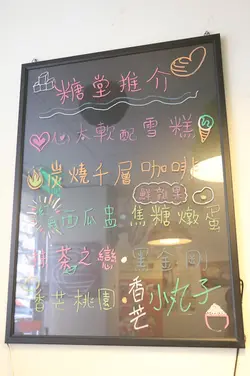 糖堂推介
心太軟配雪糕
炭燒千層咖啡
鮮雜果
西瓜盅 焦糖燉蛋
之戀 黑金
香芒桃園 香芒小丸子